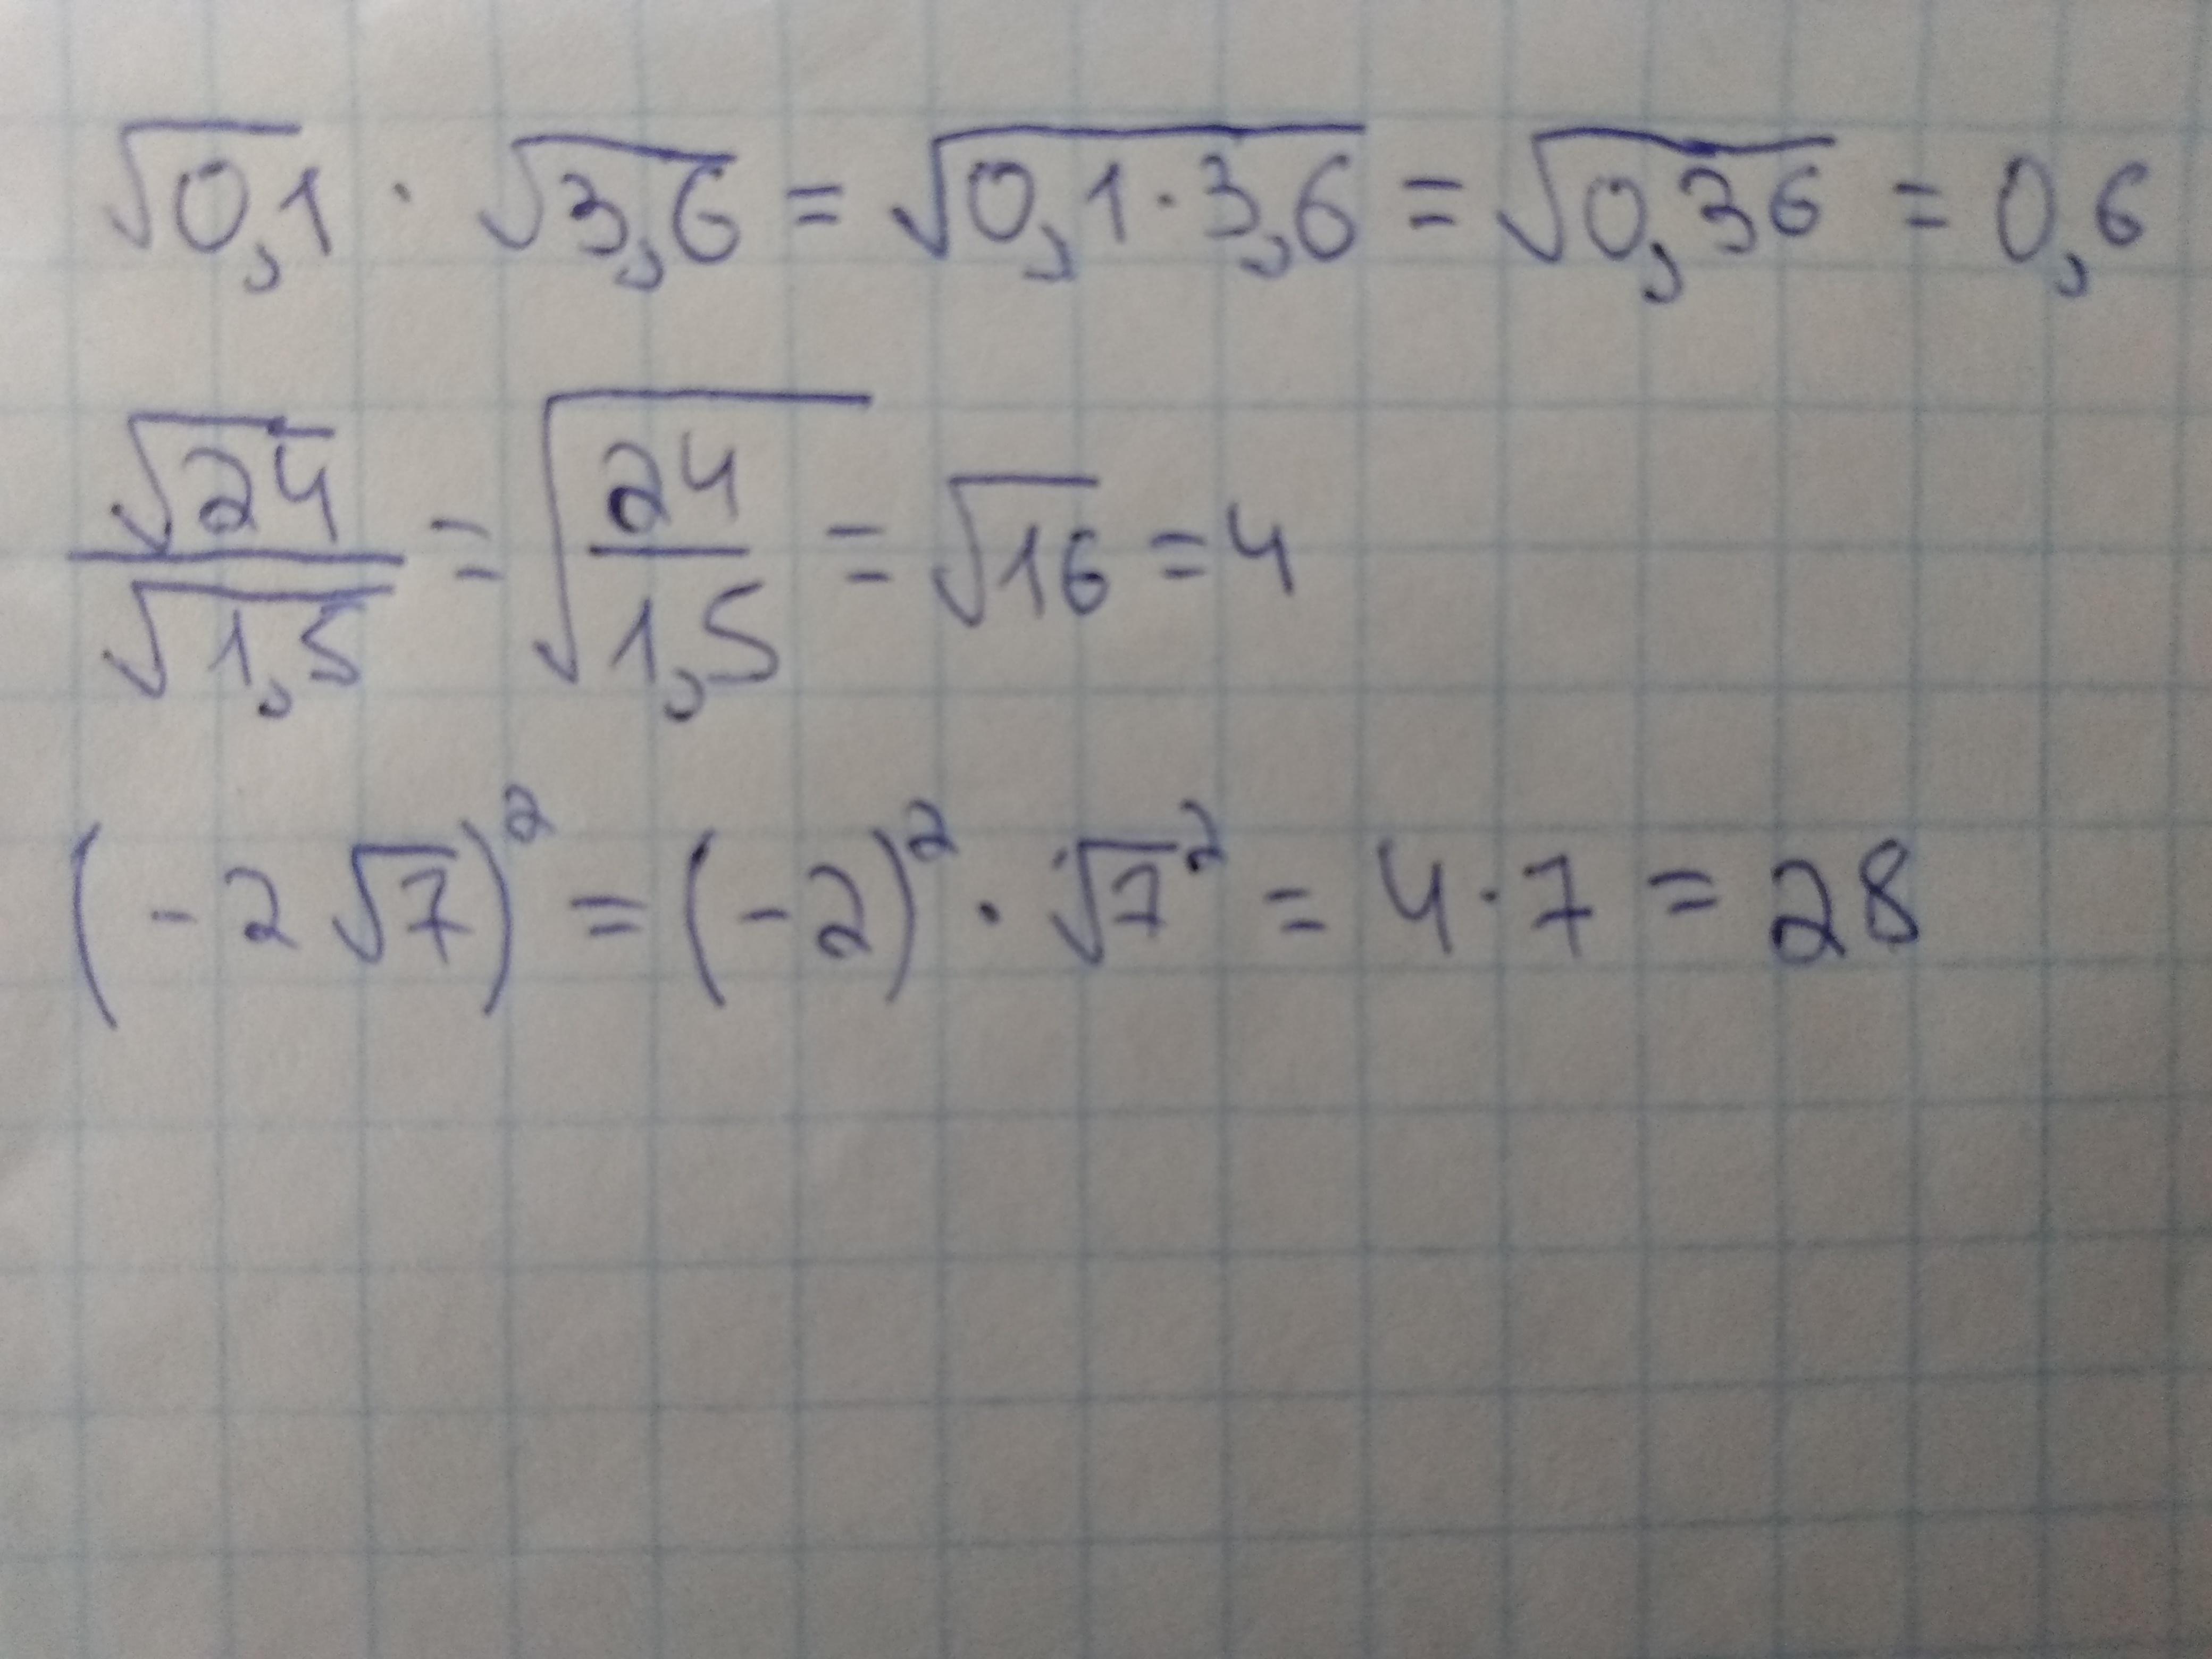 √0,1 · √3,6 = √0,1·3,6 = √0,36 = 0,6
√24/√1,5 = √(24/1,5) = √16 = 4
(-2√7)² = (-2)² · √7² = 4·7 = 28